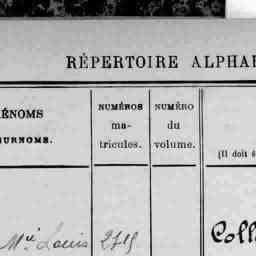 RÉPERTOIRE ALPHA
ÉNOMS
URNOMS.
NUMÉROS
ma-
tricules.
NUMÉRO
du
volume.
(Il doit ê
Mie Louis 2715
Coll